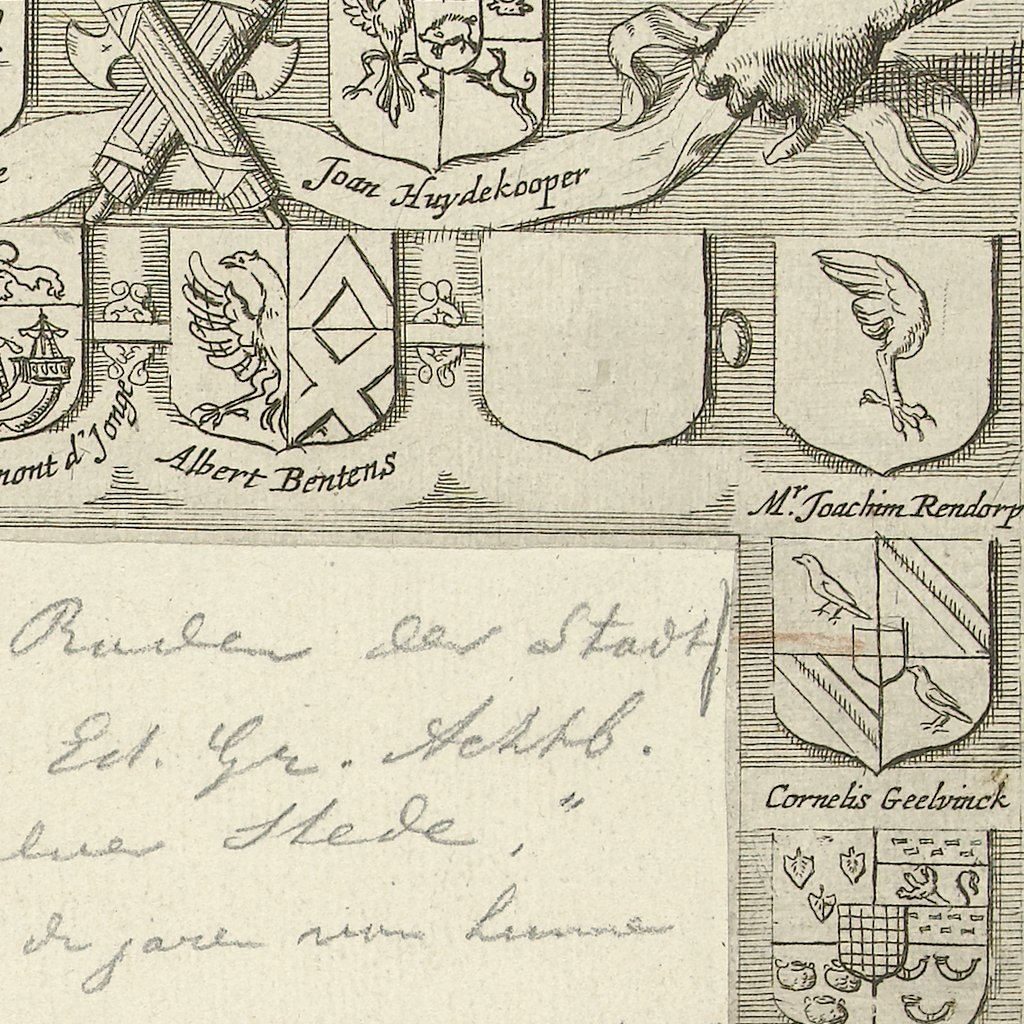 Joan Huydekooper
mont d'Jonge
Albert Bentens
Mr. Joachim Rendorp
Raden der Stadt
Ed. Gr. Achtb.
Cornelis Geelvinck
Stede,"
jaren van hunne